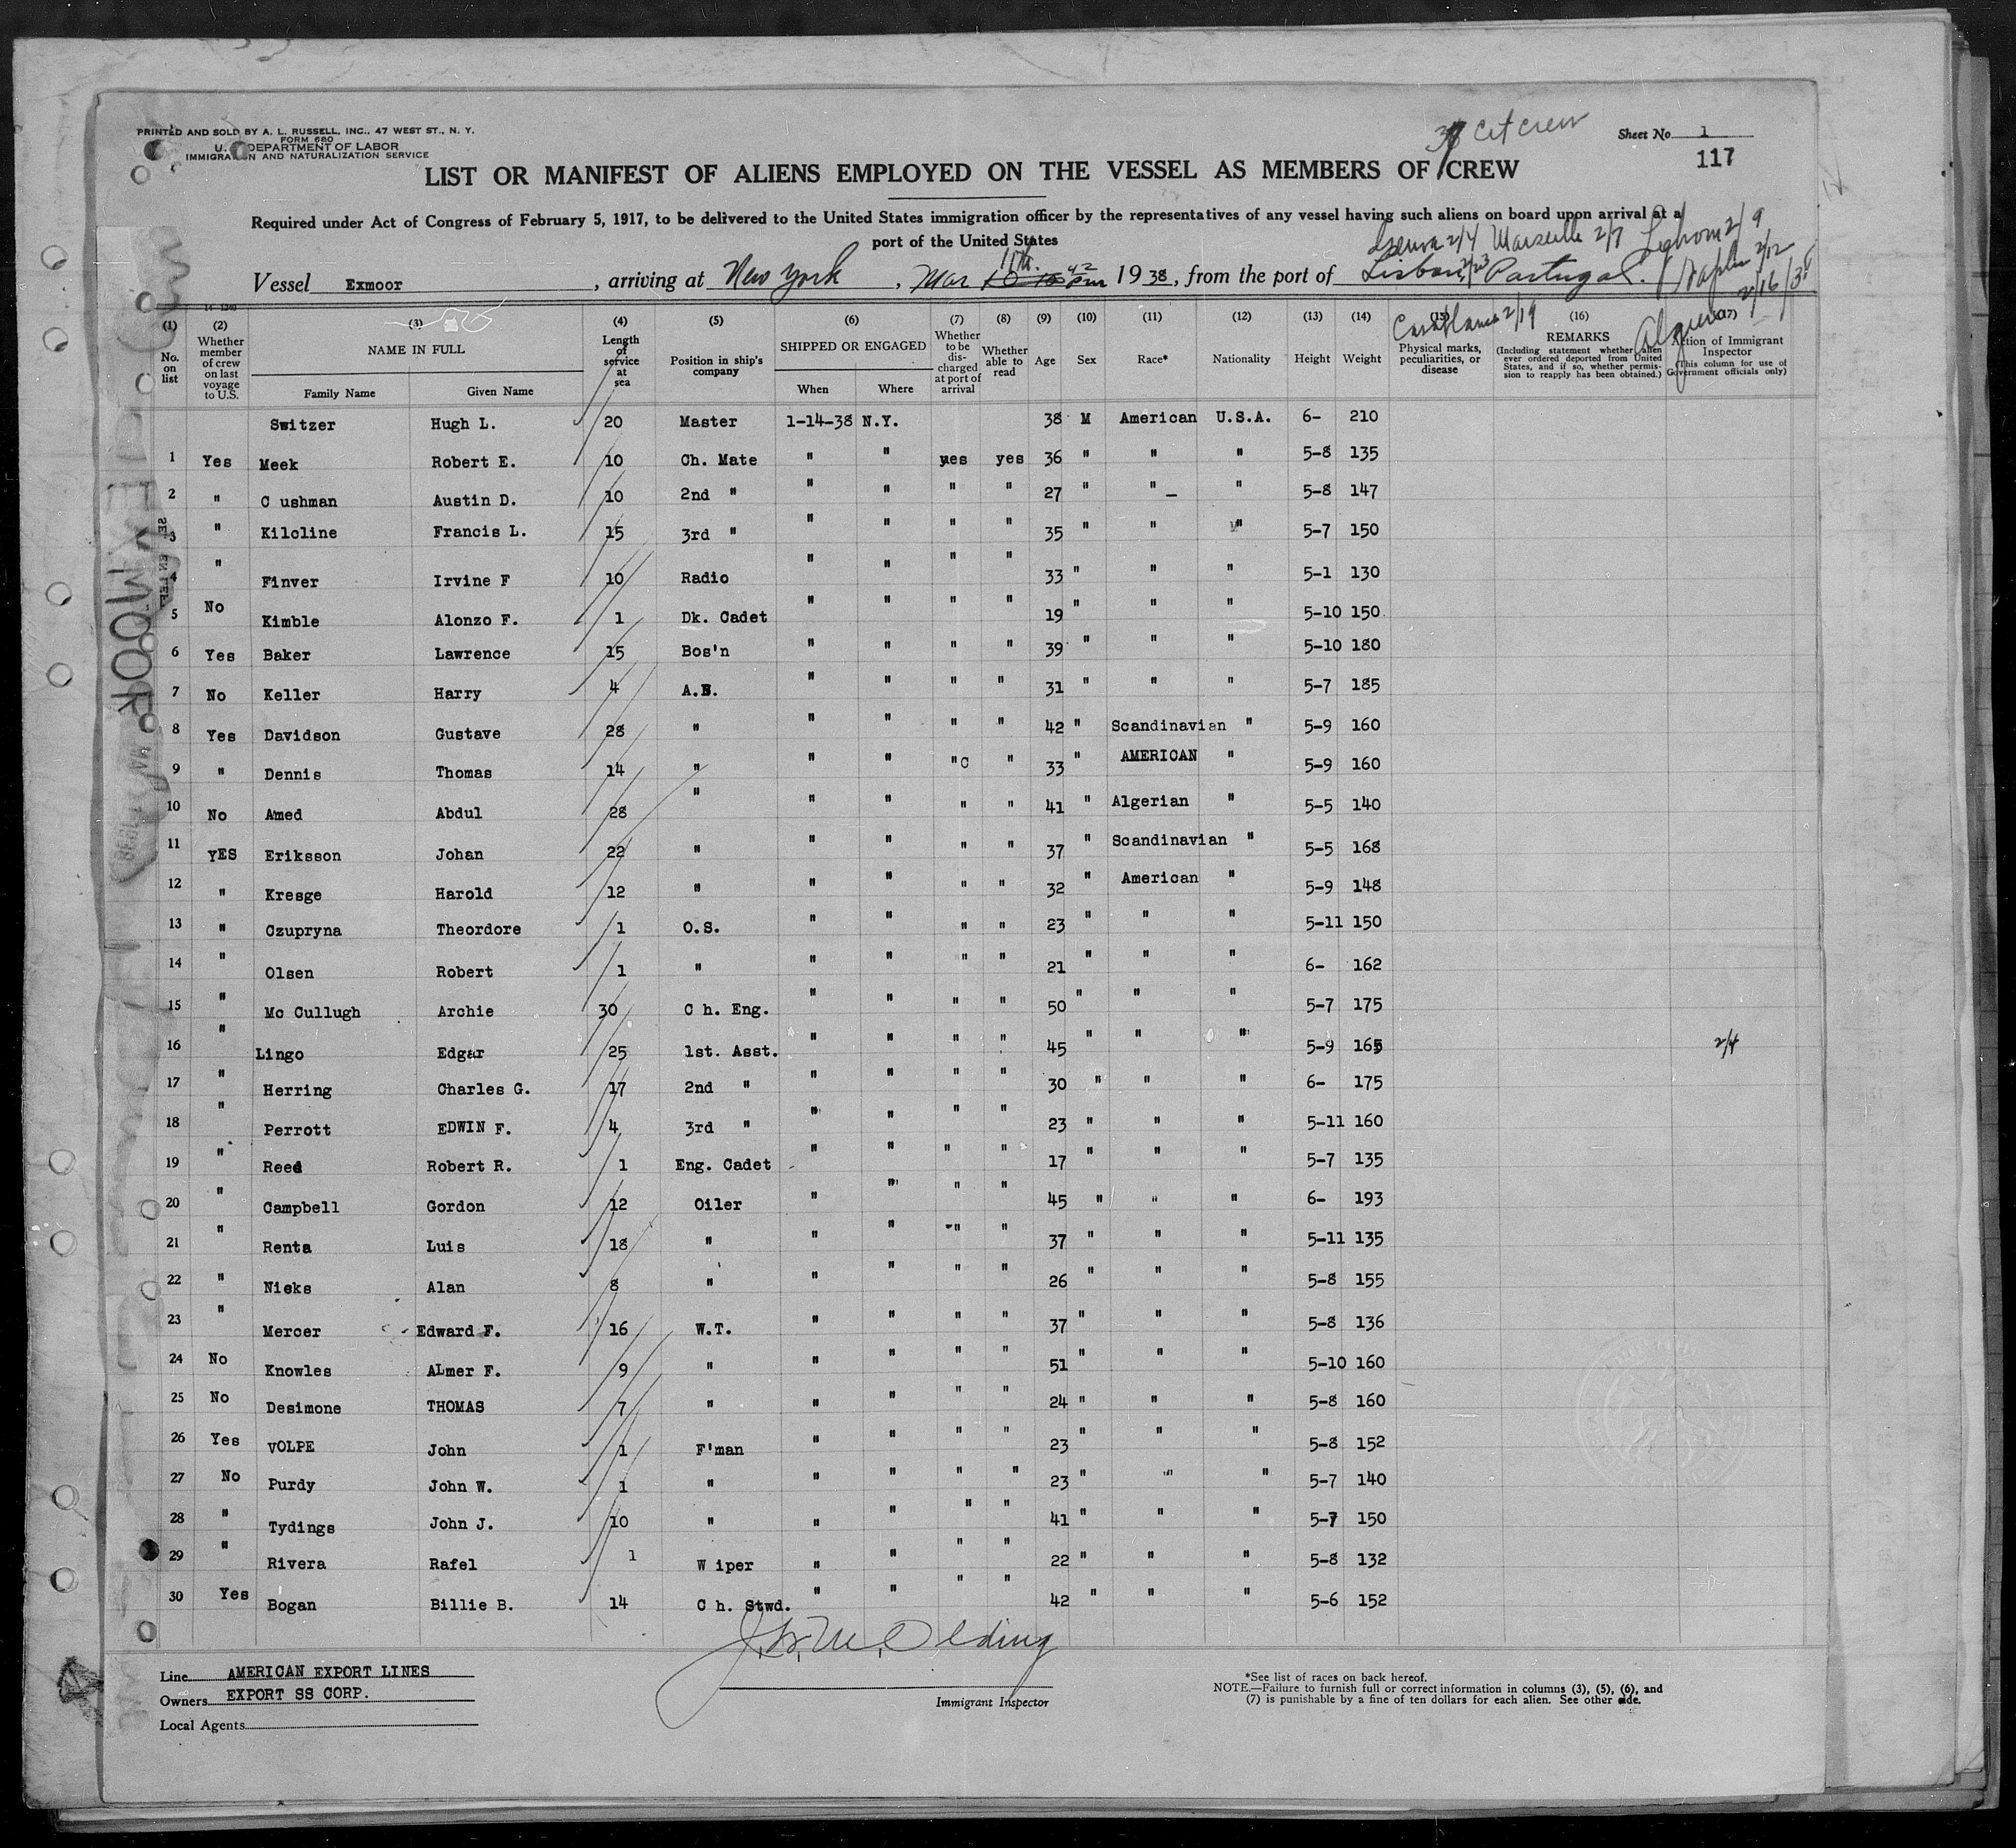 PRINTED AND SOLD BY A. L. RUSSELL, INC., 47 WEST ST., N. Y.
FORM 680
U. S. DEPARTMENT OF LABOR
IMMIGRATION AND NATURALIZATION SERVICE
Cit crew
Sheet No. 1
117
LIST OR MANIFEST OF ALIENS EMPLOYED ON THE VESSEL AS MEMBERS OF CREW
Required under Act of Congress of February 5, 1917, to be delivered to the United States immigration officer by the representatives of any vessel having such aliens on board upon arrival at a
port of the United States
Genoa 2/4 Marseille 2/7 Leghorn 2/9
Vessel Exmoor, arriving at New York, Mar 11th 1938, from the port of Lisbon, 2/23 Portugal. Naples 2/12
Casablanca 2/19 Algiers 2/16/38
14-1240
(1) (2) (3) (4) (5) (6) (7) (8) (9) (10) (11) (12) (13) (14) (15) (16) (17)
No. on list
Whether member of crew on last voyage to U.S.
NAME IN FULL
Family Name Given Name
Length of service at sea
Position in ship's company
SHIPPED OR ENGAGED
When Where
Whether to be discharged at port of arrival
Whether able to read
Age Sex Race* Nationality Height Weight
Physical marks, peculiarities, or disease
REMARKS
(Including statement whether alien ever ordered deported from United States, and if so, whether permission to reapply has been obtained.)
Action of Immigrant Inspector
(This column for use of Government officials only)
Switzer Hugh L. 20 Master 1-14-38 N.Y. 38 M American U.S.A. 6- 210
1 Yes Meek Robert E. 10 Ch. Mate " " yes yes 36 " " " 5-8 135
2 " C ushman Austin D. 10 2nd " " " " " 27 " " " 5-8 147
3 " Kilcline Francis L. 15 3rd " " " " " 35 " " " 5-7 150
4 " Finver Irvine F 10 Radio " " " " 33 " " " 5-1 130
5 No Kimble Alonzo F. 1 Dk. Cadet " " " " 19 " " " 5-10 150
6 Yes Baker Lawrence 15 Bos'n " " " " 39 " " " 5-10 180
7 No Keller Harry 4 A.B. " " " " 31 " " " 5-7 185
8 Yes Davidson Gustave 28 " " " " " 42 " Scandinavian " 5-9 160
9 " Dennis Thomas 14 " " " "C " 33 " AMERICAN " 5-9 160
10 No Amed Abdul 28 " " " " " 41 " Algerian " 5-5 140
11 YES Eriksson Johan 22 " " " " " 37 " Scandinavian " 5-5 168
12 " Kresge Harold 12 " " " " " 32 " American " 5-9 148
13 " Czupryna Theordore 1 O.S. " " " " 23 " " " 5-11 150
14 " Olsen Robert 1 " " " " " 21 " " " 6- 162
15 " Mc Cullugh Archie 30 C h. Eng. " " " " 50 " " " 5-7 175
16 " Lingo Edgar 25 1st. Asst. " " " " 45 " " " 5-9 165 2/4
17 " Herring Charles G. 17 2nd " " " " " 30 " " " 6- 175
18 " Perrott EDWIN F. 4 3rd " " " " " 23 " " " 5-11 160
19 " Reed Robert R. 1 Eng. Cadet " " " " 17 " " " 5-7 135
20 " Campbell Gordon 12 Oiler " " " " 45 " " " 6- 193
21 " Renta Luis 18 " " " " " 37 " " " 5-11 135
22 " Nieks Alan 8 " " " " " 26 " " " 5-8 155
23 " Mercer Edward F. 16 W.T. " " " " 37 " " " 5-8 136
24 No Knowles ALmer F. 9 " " " " " 51 " " " 5-10 160
25 No Desimone THOMAS 7 " " " " " 24 " " " 5-8 160
26 Yes VOLPE John 1 F'man " " " " 23 " " " 5-8 152
27 No Purdy John W. 1 " " " " " 23 " " " 5-7 140
28 " Tydings John J. 10 " " " " " 41 " " " 5-7 150
29 " Rivera Rafel 1 W iper " " " " 22 " " " 5-8 132
30 Yes Bogan Billie B. 14 C h. Stwd. " " " " 42 " " " 5-6 152
EXMOOR
Line AMERICAN EXPORT LINES
Owners EXPORT SS CORP.
Local Agents
Immigrant Inspector
*See list of races on back hereof.
NOTE.—Failure to furnish full or correct information in columns (3), (5), (6), and
(7) is punishable by a fine of ten dollars for each alien. See other side.